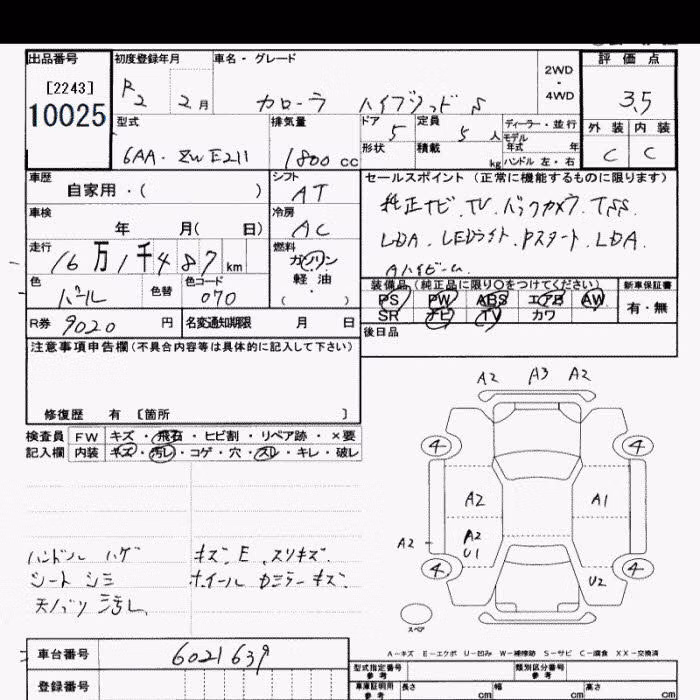 出品番号 初度登録年月 車名・グレード 評価点
[2243] R2 2月 カローラ ハイブリッド S 2WD・4WD 3.5
10025
型式 排気量 ドア 定員 ディーラー・並行 外装 内装
6AA-ZWE211 1800cc 5 5人 モデル年式 年 C C
形状 積載 kg ハンドル 左・右
車歴 シフト セールスポイント(正常に機能するものに限ります)
自家用・( ) AT 純正ナビ.TV.バックカメラ.TSS
車検 冷房 LDA.LEDライト.Pスタート.LDA.
年 月( 日) AC Aハイビーム.
走行 燃料
16万1千487km ガソリン
色 色替 色コード 軽油
パール 070 ( )
装備品(純正品に限り〇をつけてください) 新車保証書
PS PW ABS エアB AW 有・無
SR ナビ TV カワ
R券 9020円 名変通知期限 月 日
後日品
注意事項申告欄(不具合内容等は具体的に記入して下さい)
修復歴 有 [箇所 ]
検査員 FW キズ・飛石・ヒビ割・リペア跡・×要
記入欄 内装 キズ・汚レ・コゲ・穴・スレ・キレ・破レ
A2 A3 A2
4 4
A2 A1
A2 A2
U1
4 4
U2
スペア
ハンドル ハゲ キズ.E.スリキズ.
シート シミ ホイール カミラー キズ.
天バリ 汚レ
A-キズ E-エクボ U-凹み W-補修跡 S-サビ C-腐食 XX-交換済
車台番号 6021639
型式指定番号 参考 類別区分番号 参考
登録番号 車庫証明用 参考 長さ cm 幅 cm 高さ cm